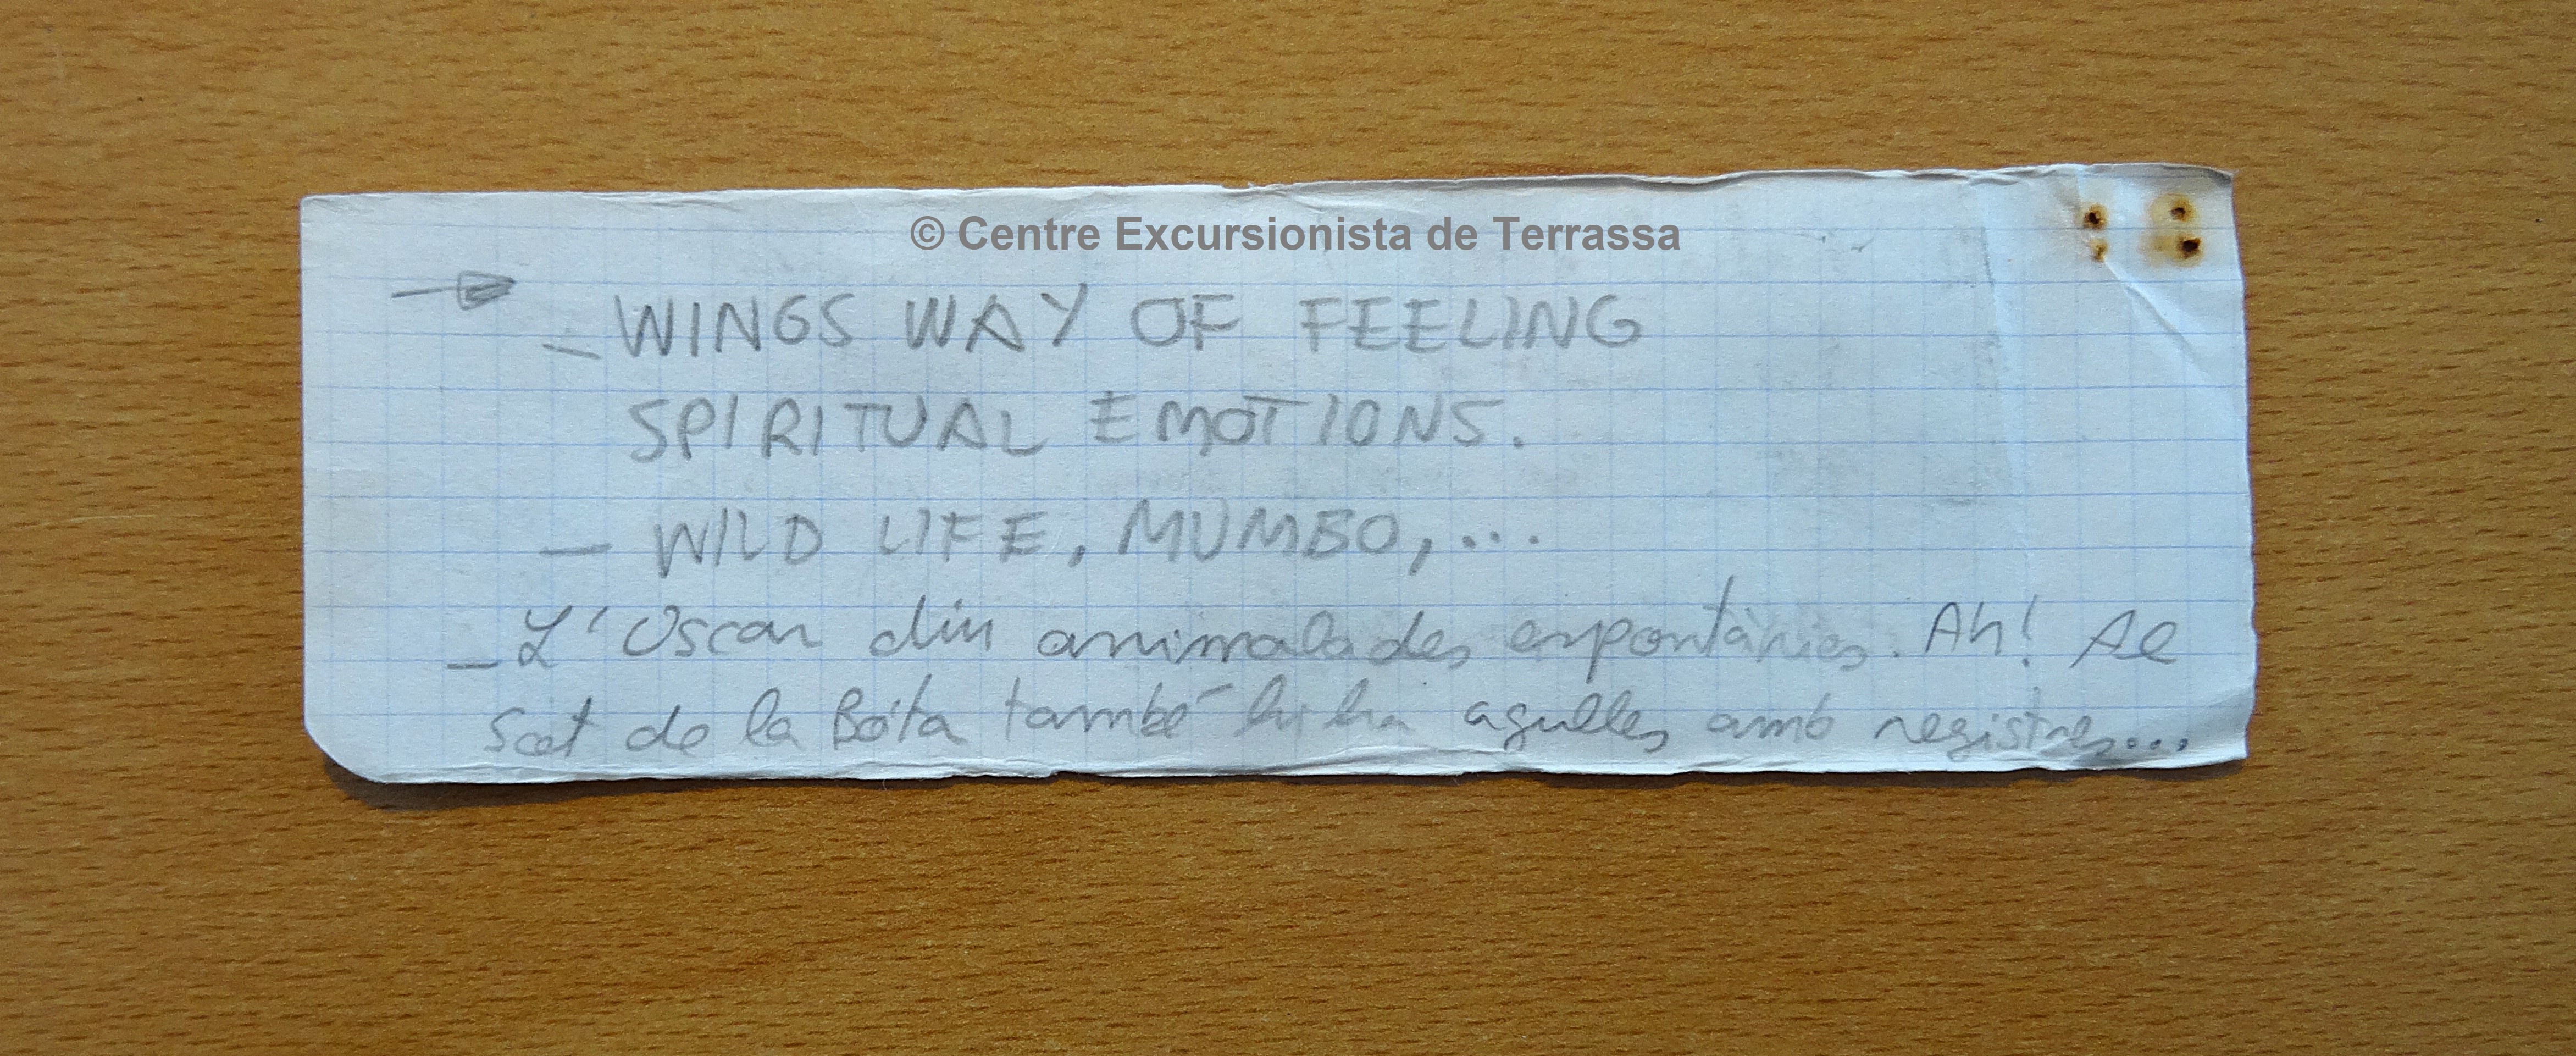 © Centre Excursionista de Terrassa
→ – WINGS WAY OF FEELING
SPIRITUAL EMOTIONS.
– WILD LIFE, MUMBO, ...
– L'Oscar diu animalades espontànies. Ah! Al
Scot de la Bóta també hi ha agulles amb registres...